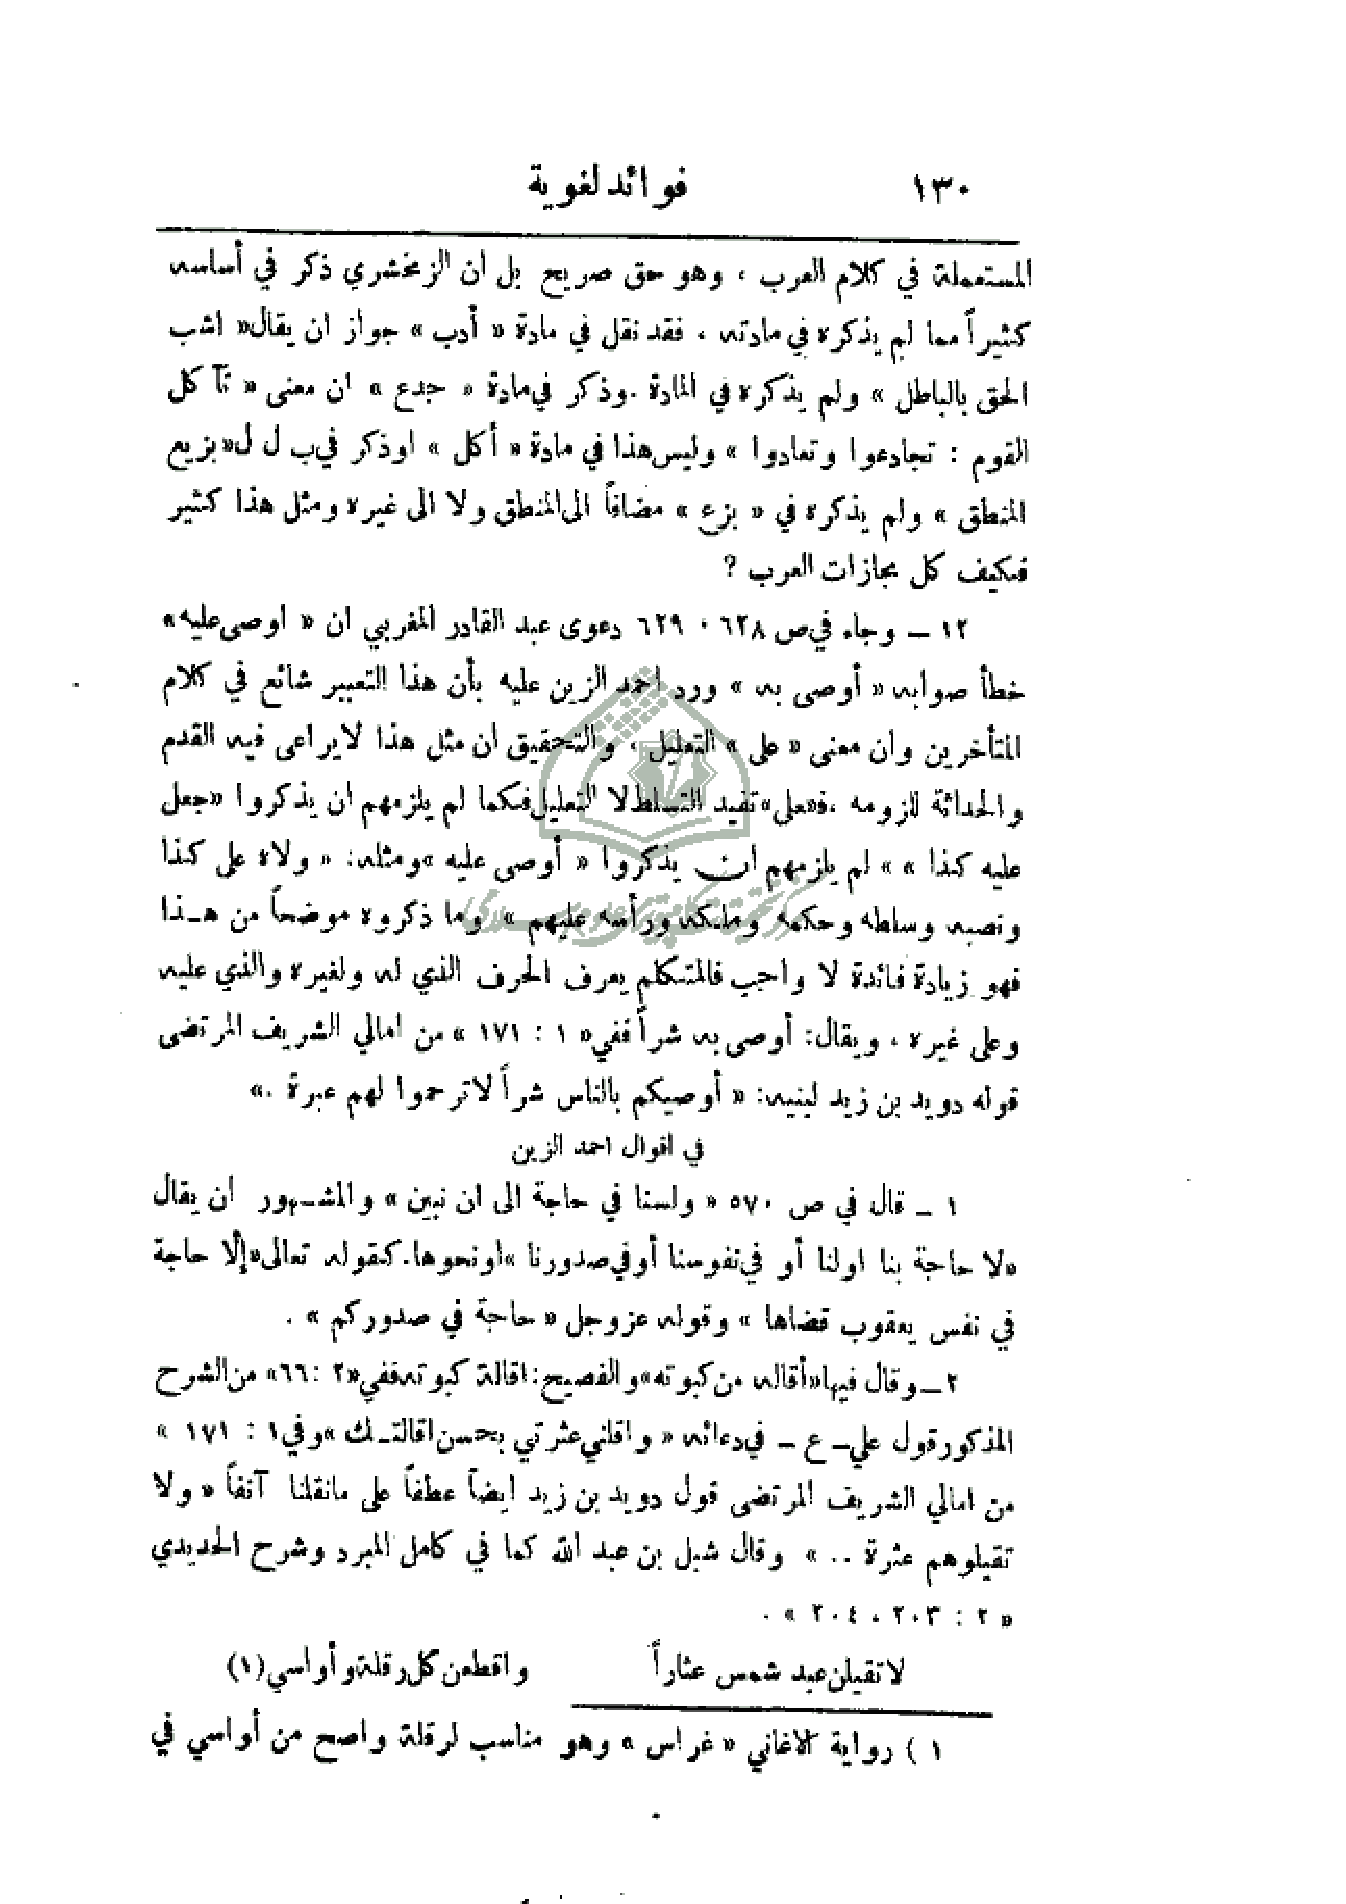 ١٣٠ فوائد لغوية
المستعملة في كلام العرب ، وهو حق صريح بل ان الزمخشري ذكر في أساسه
كثيراً مما لم يذكره في مادته ، فقد نقل في مادة « أدب » جواز ان يقال« اشب
الحق بالباطل » ولم يذكره في المادة .وذكر في مادة « جدع » ان معنى « تآكل
القوم : تجادعوا وتعادوا » وليس هذا في مادة « أكل » اوذكر في ب ل ل« بزيع
المنطق » ولم يذكره في « بزع » مضافاً الى المنطق ولا الى غيره ومثل هذا كثير
فكيف كل مجازات العرب ?
١٢ ـ وجاء في ص ٦٢٨ ، ٦٢٩ دعوى عبد القادر المغربي ان « اوصى عليه»
خطأ صوابه « أوصى به » ورد احمد الزين عليه بأن هذا التعبير شائع في كلام
المتأخرين وان معنى « على » التعليل ، والتحقيق ان مثل هذا لايراعى فيه القدم
والحداثة للزومه ،ف«على» تفيد التسلط لا التعليل فكما لم يلزمهم ان يذكروا «جعل
عليه كذا » » لم يلزمهم ان يذكروا « أوصى عليه »ومثله: « ولاه على كذا
ونصبه وسلطه وحكمه وملكه ورأسه عليهم » وما ذكروه موضحاً من هـذا
فهو زيادة فائدة لا واجب فالمتكلم يعرف الحرف الذي له ولغيره والذي عليه
وعلى غيره ، ويقال: أوصى به شراً ففي« ١ : ١٧١ » من امالي الشريف المرتضى
قوله دويد بن زيد لبنيه: « أوصيكم بالناس شراً لاترحموا لهم عبرة .»
في اقوال احمد الزين
١ ـ قال في ص ٥٧٠ « ولسنا في حاجة الى ان نبين » والمشـهور ان يقال
«لا حاجة بنا اولنا أو في نفوسنا أوفي صدورنا »اونحوها.كقوله تعالى«إلّا حاجة
في نفس يعقوب قضاها » وقوله عزوجل « حاجة في صدوركم » .
٢ـ وقال فيها«أقاله من كبوته»والفصيح:اقالة كبوته ففي«٢ :٦٦» من الشرح
المذكورقول علي ـ ع ـ في دعائه « واقلني عثرتي بحسن اقالتـك »وفي ١ : ١٧١ »
من امالي الشريف المرتضى قول دويد بن زيد ايضاً عطفاً على مانقلنا آنفاً « ولا
تقيلوهم عثرة .. » وقال شبل بن عبد الله كما في كامل المبرد وشرح الحديدي
« ٢ : ٢٠٣ ، ٢٠٤ » .
لاتقيلن عبد شمس عثاراً واقطعن كل رقلة وأواسي(١)
١ ) رواية الاغاني « غراس » وهو مناسب لرقلة واصح من أواسي في